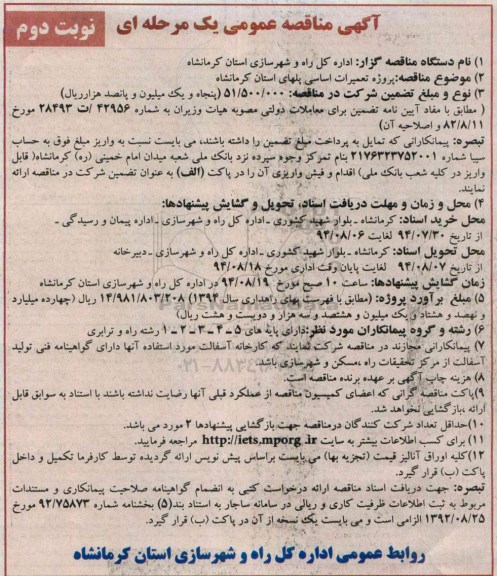 آگهی مناقصه عمومی یک مرحله ای
نوبت دوم
۱) نام دستگاه مناقصه گزار: اداره کل راه و شهرسازی استان کرمانشاه
۲) موضوع مناقصه:پروژه تعمیرات اساسی پلهای استان کرمانشاه
۳) نوع و مبلغ تضمین شرکت در مناقصه: ۵۱/۵۰۰/۰۰۰ (پنجاه و یک میلیون و پانصد هزارریال)
( مطابق با مفاد آیین نامه تضمین برای معاملات دولتی مصوبه هیات وزیران به شماره ۴۲۹۵۶ /ت ۲۸۴۹۳ مورخ
۸۲/۸/۱۱ و اصلاحیه آن)
تبصره: پیمانکارانی که تمایل به پرداخت مبلغ تضمین را داشته باشند، می بایست نسبت به واریز مبلغ فوق به حساب
سیبا شماره ۲۱۷۶۳۲۳۷۵۲۰۰۱ بنام تمرکز وجوه سپرده نزد بانک ملی شعبه میدان امام خمینی (ره) کرمانشاه( قابل
واریز در کلیه شعب بانک ملی) اقدام و فیش واریزی آن را در پاکت (الف) به عنوان تضمین شرکت در مناقصه ارائه
نمایند.
۴) محل و زمان و مهلت دریافت اسناد، تحویل و گشایش پیشنهادها:
محل خرید اسناد: کرمانشاه ـ بلوار شهید کشوری ـ اداره کل راه و شهرسازی ـ اداره پیمان و رسیدگی ـ
از تاریخ ۹۴/۰۷/۳۰ لغایت ۹۴/۰۸/۰۶
محل تحویل اسناد: کرمانشاه ـ بلوار شهید کشوری ـ اداره کل راه و شهرسازی ـ دبیرخانه
از تاریخ ۹۴/۰۸/۰۷ لغایت پایان وقت اداری مورخ ۹۴/۰۸/۱۸
زمان گشایش پیشنهادها: ساعت ۱۰ صبح مورخ ۹۴/۰۸/۱۹ در اداره کل راه و شهرسازی استان کرمانشاه
۵) مبلغ برآورد پروژه: (مطابق با فهرست بهای راهداری سال ۱۳۹۴) ۱۴/۹۸۱/۸۰۳/۲۰۸ ریال (چهارده میلیارد
و نهصد و هشتاد و یک میلیون و هشتصد و سه هزار و دویست و هشت ریال)
۶) رشته و گروه پیمانکاران مورد نظر:دارای پایه های ۵ ـ ۴ ـ ۳ ـ ۲ ـ ۱ رشته راه و ترابری
۷) پیمانکارانی مجازند در مناقصه شرکت نمایند که کارخانه آسفالت مورد استفاده آنها دارای گواهینامه فنی تولید
آسفالت از مرکز تحقیقات راه ،مسکن و شهرسازی باشد.
۸) هزینه چاپ آگهی بر عهده برنده مناقصه است.
۹)پاکت مناقصه گرانی که اعضای کمیسیون مناقصه از عملکرد قبلی آنها رضایت نداشته باشند با استناد به سوابق قابل
ارائه ،بازگشایی نخواهد شد.
۱۰)حداقل تعداد شرکت کنندگان درمناقصه جهت بازگشایی پیشنهادها ۲ مورد می باشد.
۱۱) برای کسب اطلاعات بیشتر به سایت http://iets.mporg.ir مراجعه فرمایید.
۱۲)کلیه اوراق آنالیز قیمت (تجزیه بها) می بایست براساس پیش نویس ارائه گردیده توسط کارفرما تکمیل و داخل
پاکت (ب) قرار گیرد.
تبصره: جهت دریافت اسناد مناقصه ارائه درخواست کتبی به انضمام گواهینامه صلاحیت پیمانکاری و مستندات
مربوط به ثبت اطلاعات ظرفیت کاری و ریالی در سامانه ساجار به استناد بند(۵) بخشنامه شماره ۹۲/۷۵۸۷۳ مورخ
۱۳۹۲/۰۸/۲۵ الزامی است و می بایست یک نسخه از آن در پاکت (ب) قرار گیرد.
روابط عمومی اداره کل راه و شهرسازی استان کرمانشاه